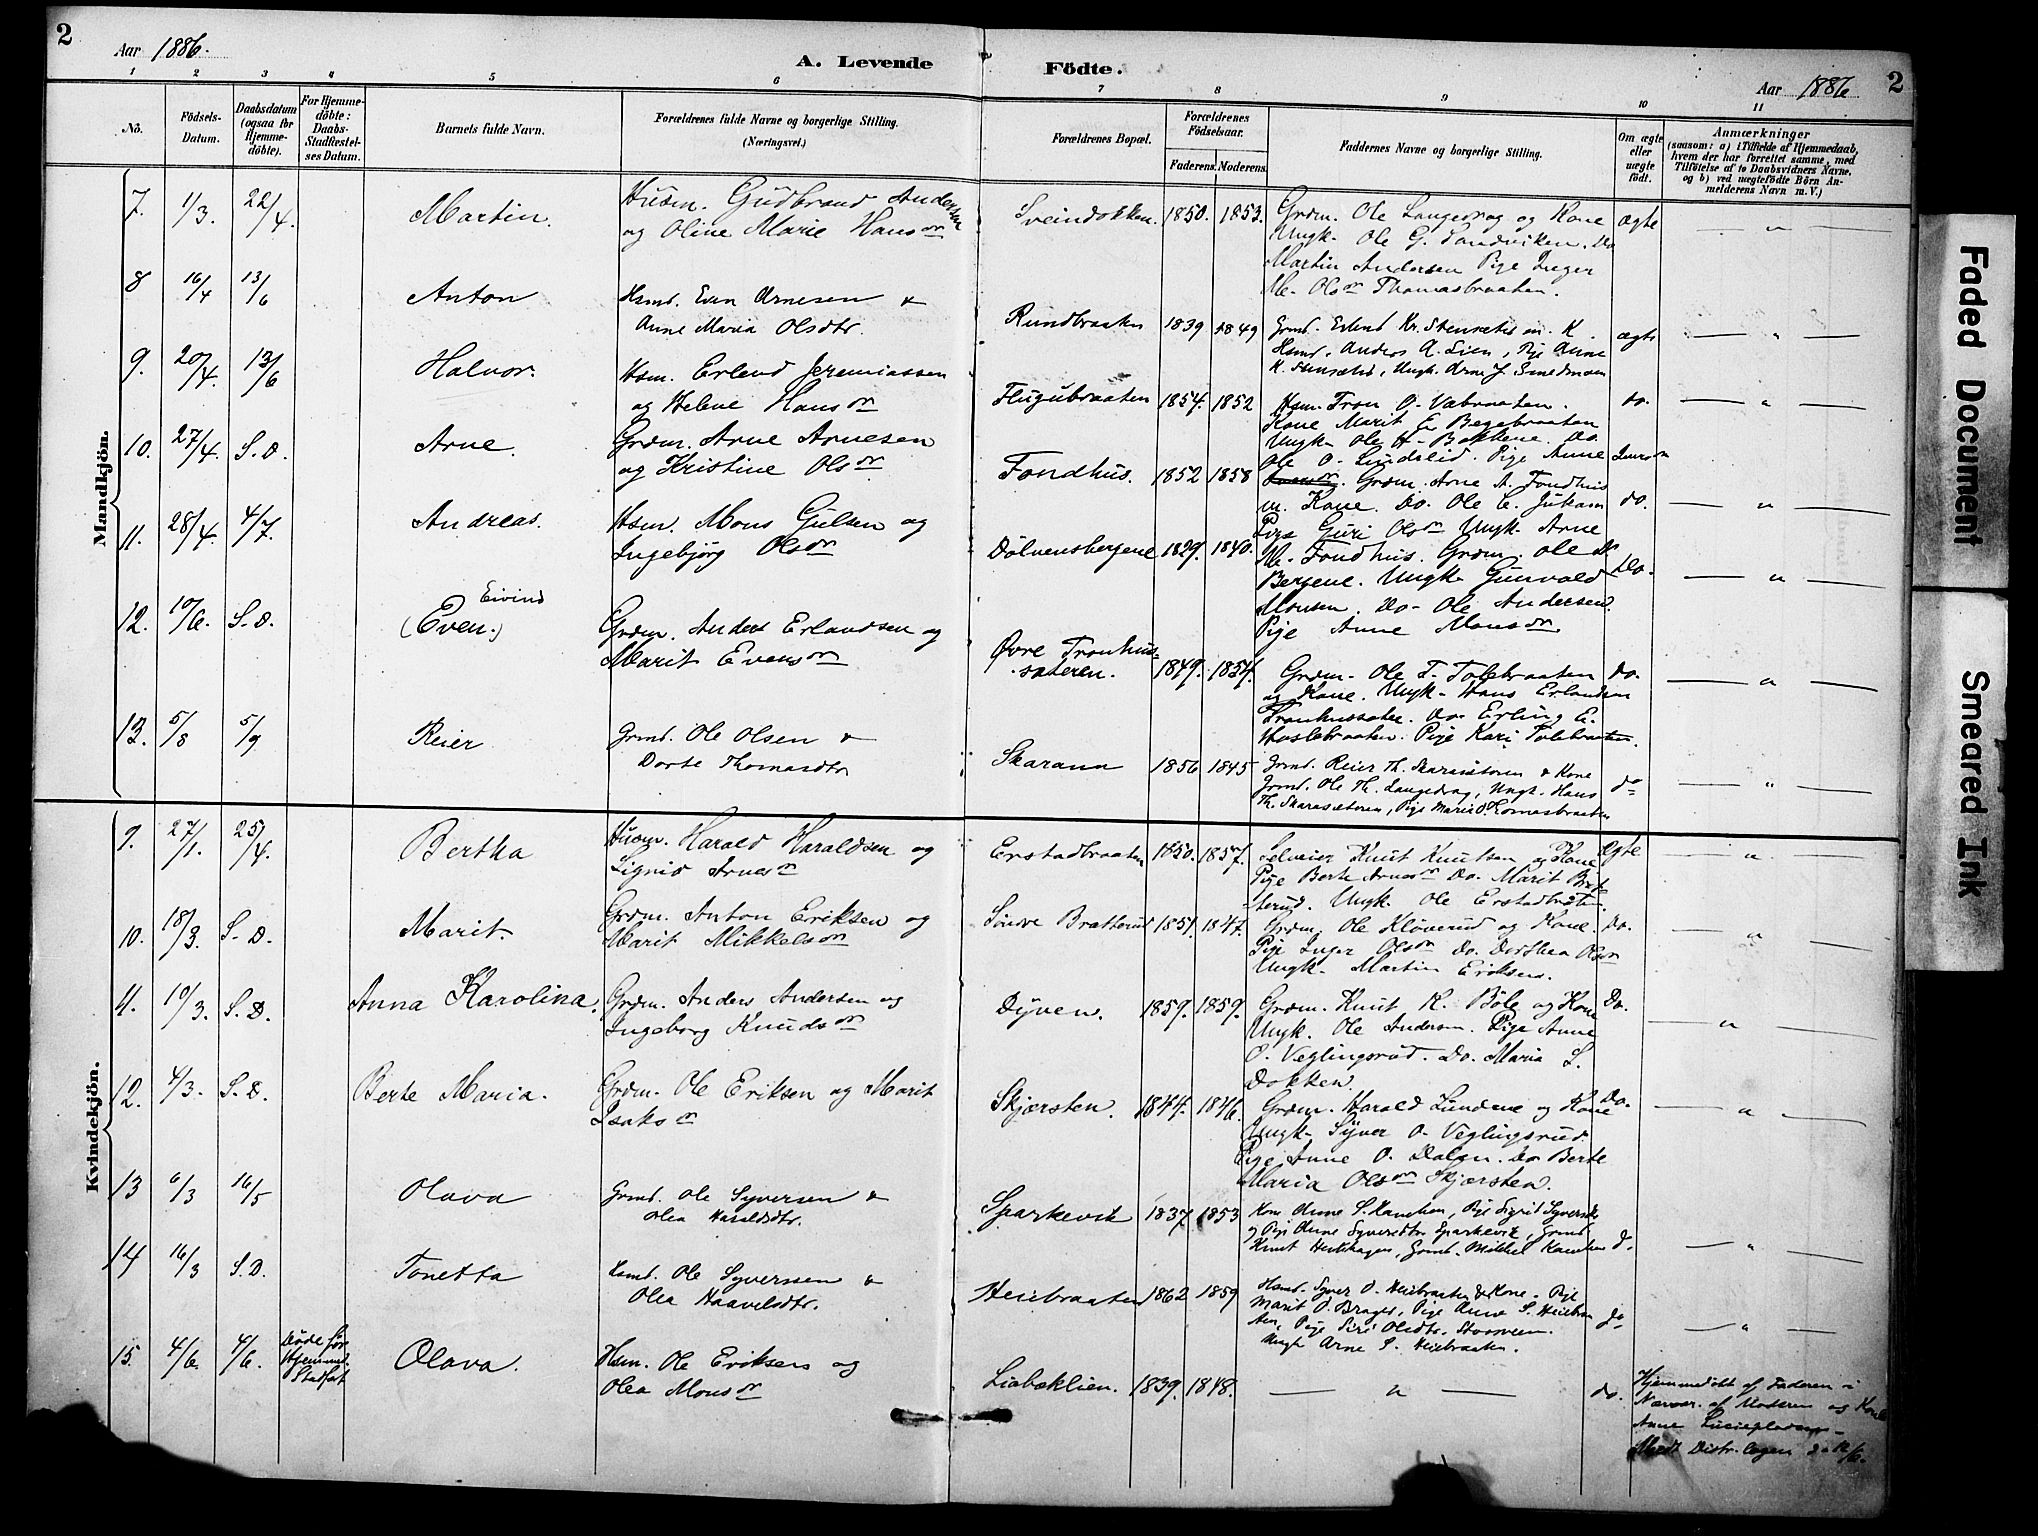 2
Aar 1886.
A. Levende Födte.
Aar 1886
2
1 2 3 4 5 6 7 8 9 10 11
No.
Födsels-Datum.
Daabsdatum (ogsaa for Hjemme-döbte).
For Hjemme-döbte: Daabs-Stadfæstel-ses Datum.
Barnets fulde Navn.
Forældrenes fulde Navne og borgerlige Stilling.
(Næringsvei.)
Forældrenes Bopæl.
Forældrenes Födselsaar.
Faderens. Moderens.
Faddernes Navne og borgerlige Stilling.
Om ægte eller uægte födt.
Anmærkninger
(saasom: a) i Tilfælde af Hjemmedaab,
hvem der har forrettet samme, med
Tilföielse af to Daabsvidners Navne,
og b) ved uægtefödte Börn An-
melderens Navn m. V.)
Mandkjön.
7. 1/3. 22/4. Martin. Husm. Gudbrand Andersen
og Oline Marie Hansdr
Sveindokken. 1850. 1853. Grdm. Ole Langedrag og Kone ægte — " —
Ungk. Ole G. Sandviken. Do
Martin Andersen Pige Inger
M. Olsdr Thomasbraaten.
8 16/4 13/6 Anton Hsmd. Even Arnesen &
Anne Maria Olsdtr
Rundbraaten 1839 1849 Grmd. Erlend Kr. Stensetei m. K. ægte — " —
Hsmd. Anders A. Lien, Pije Anne
K. Stensetei, Ungk. Arne J. Smedmoen
9. 20/4. 13/6 Halvor. Hsm. Erlend Jeremiassen
og Helene Hansdr
Flugubraaten 1854. 1852 Hsm. Tron O. Vabraaten. do. — " —
Kone Marit E. Begebraaten
Ungk. Ole H. Bakkene. Do.
Ole O. Lundslid. Pige Anne
10. 27/4. S.D. Arne. Grdm. Arne Arnesen
og Kristine Olsdr
Fondhus. 1852 1858 Grdm. Arne A. Fondhus do. — " —
m. Kone. Do. Ole E. Jukam
Pige Guri Olsdr Ungk. Arne
M. Fondhus.
11. 28/4. 4/7. Andreas. Hsm. Mons Gulsen og
Ingebjörg Olsdr
Dölvensbergene 1829. 1840. Grdm. Ole Do. — " —
Bergene. Ungk. Gunvald
Monsen. Do. Ole Andersen.
Pige Anne Monsdr
12. 10/6. S.D. Eivind
(Even.)
Grdm. Anders Erlandsen og
Marit Evensdr
Övre Tronhus-
sæteren. 1849. 1854. Grdm. Ole T. Tolebraaten do. — " —
og Kone. Ungk. Hans Erlandsen
Tronhussæter. Do. Erling E.
Haslebraaten. Pige Kari Tolebraaten.
13. 5/8 5/9 Reier Grmd. Ole Olsen &
Dorte Thomasdtr
Skarann 1856 1845 Grmd. Reier Th. Skarasætoren & Kone do — " —
Grmd. Ole Th. Langedrag, Ungk. Hans
Th. Skarasætoren, Pige Marie O. Tomasbraaten
Kvindekjön.
9. 27/1. 25/4. Bertha Husm. Harald Haraldsen og
Sigrid Arnesdr
Erstadbraaten 1850. 1857. Selveier Knut Knutsen og Kone Ægte — " —
Pige Berte Arnesdr Do. Marit Brat-
terud. Ungk. Ole Erstadbråten.
10. 18/3. S.D. Marit. Grdm. Anton Eriksen og
Marit Mikkelsdr
Söndre Bratterud 1851. 1847. Grdm. Ole Klöverud og Kone. Do. — " —
Pige Inger Olsdr Do. Dorthea Olsdr
Ungk. Martin Eriksen.
11. 10/3. S.D. Anna Karolina. Grdm. Anders Andersen og
Ingeborg Knudsdr
Dyven. 1859. 1859. Grdm. Knut K. Böle og Kone Do. — " —
Ungk. Ole Andersen. Pige Anne
O. Veglingsrud. Do. Maria S.
Dokken.
12. 4/3. S.D. Berte Maria. Grdm. Ole Eriksen og Marit
Isaksdr
Skjærsten. 1844. 1846. Grdm. Harald Lundene og Kone Do. — " —
Ungk. Syver O. Veglingsrud.
Pige Anne O. Dalen. Do Berte
Maria Olsdr Skjærsten.
13 6/3 16/5 Olava Grmd. Ole Syversen &
Olea Haraldsdtr.
Sparkevik 1837 1853 Kone Anne S. Kamben, Pije Sigrid Syversdr
og Pije Anne Syversdtr Sparkevik, Grmd.
Knut Heikhagen, Grmd. Mikkel Kamben do. — " —
14 16/3 S.D. Tonetta Hsmd. Ole Syversen &
Olea Haavelsdtr.
Heiebraaten 1862 1859 Hsmd. Syver O. Heiebraaten & Kone. Pije
Marit O. Brager, Pije Anne S. Heiebraa-
ten, Pije Siri Olsdtr. Storveen. do — " —
Ungk Arne S. Heiebraaten.
15. 4/6. 4/6. Döde för
Hjemmed.
Stadfæst
Olava. Hsm. Ole Eriksen og
Olea Monsdr
Liabæklien. 1839. 1848. — " — do. Hjemmedöbt af Faderen i
Nærvær. af Moderen og Kone
Anne Luciepladsen
Mødt Distr. lægen d. 12/6.
Faded Document
Smeared Ink